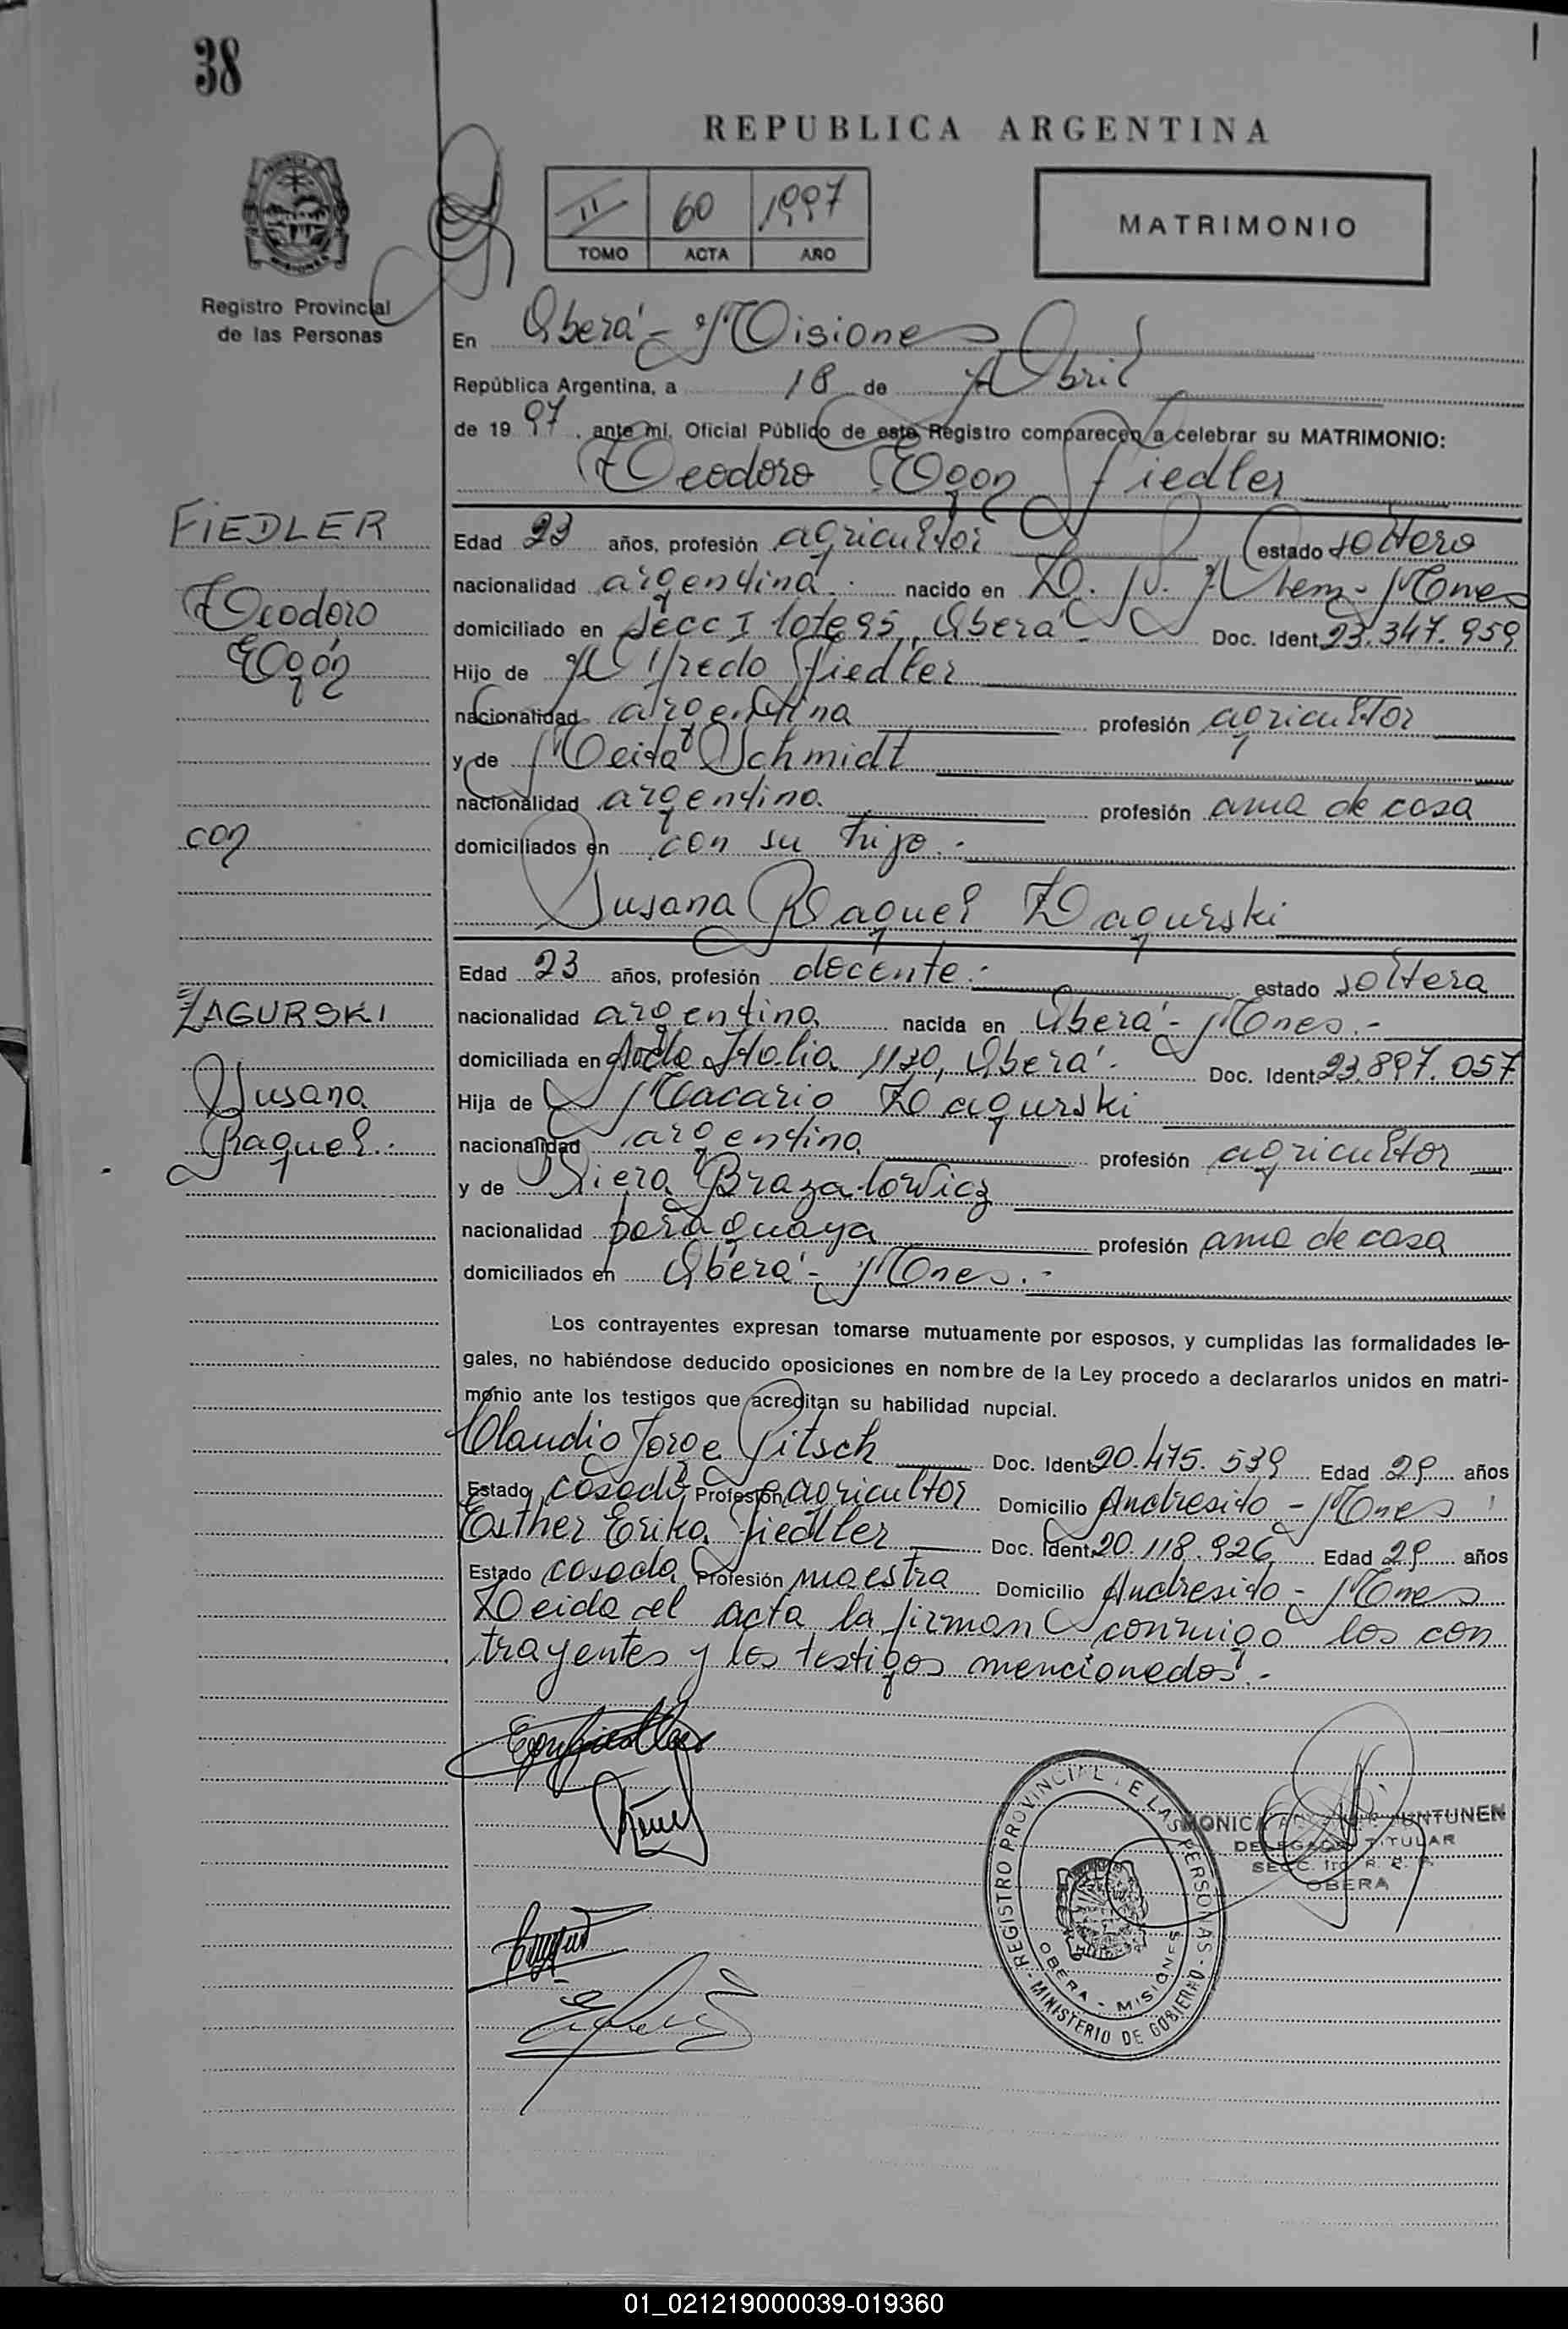 38
REPUBLICA ARGENTINA
II 60 1997
TOMO ACTA AÑO
MATRIMONIO
Registro Provincial
de las Personas
En Oberá - Misiones
República Argentina, a 18 de Abril
de 1997, ante mí, Oficial Público de este Registro comparecen a celebrar su MATRIMONIO:
Teodoro Egon Fiedler
FIEDLER
Teodoro
Egón
con
ZAGURSKI
Susana
Raquel.-
Edad 23 años, profesión agricultor estado soltero
nacionalidad argentina.- nacido en L. N. Alem - Mnes
domiciliado en Secc I lote 95, Oberá - Doc. Ident. 23.347.959
Hijo de Alfredo Fiedler
nacionalidad argentina profesión agricultor
y de Meita Schmidt
nacionalidad argentina profesión ama de casa
domiciliados en con su hijo.-
Susana Raquel Zagurski
Edad 23 años, profesión docente.- estado soltera
nacionalidad argentina nacida en Oberá - Mnes.-
domiciliada en Avda Italia 1120, Oberá.- Doc. Ident. 23.897.057
Hija de Macario Zagurski
nacionalidad argentina profesión agricultor
y de Brazalowicz
nacionalidad paraguaya profesión ama de casa
domiciliados en Oberá - Mnes.-
Los contrayentes expresan tomarse mutuamente por esposos, y cumplidas las formalidades le-
gales, no habiéndose deducido oposiciones en nombre de la Ley procedo a declararlos unidos en matri-
monio ante los testigos que acreditan su habilidad nupcial.
Claudio Jorge Pitsch Doc. Ident. 20.475.539 Edad 29 años
Estado casado Profesión agricultor Domicilio Andresito - Mnes
Esther Erika Fiedler Doc. Ident. 20.118.926 Edad 29 años
Estado casada Profesión maestra Domicilio Andresito - Mnes
Leida el acta la firman conmigo los con
trayentes y los testigos mencionados.-
REGISTRO PROVINCIAL DE LAS PERSONAS - MINISTERIO DE GOBIERNO
OBERA - MISIONES
MONICA JUNTUNEN
DELEGADA TITULAR
SECC. 1ra R. C. P.
OBERA
01_021219000039-019360